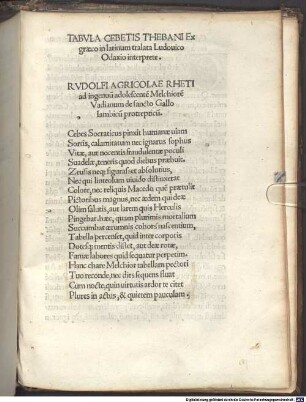 TABVLA CEBETIS THEBANI Ex
græco in latinum tralata Ludouico
Odaxio interprete.
RVDOLFI AGRICOLAE RHETI
ad ingenuū adolescentē Melchiorē
Vadianum de sancto Gallo
Iambicū protrepticū.
Cebes Socraticus pinxit humanæ uiam
Sortis, calamitatum nec ignarus sophus
Vitæ, aut nocentis fraudulentæ poculi
Suadelæ, teneris quod diebus præbuit.
Zeusis neq; figurasset absolutius,
Nec qui linteolum inuido distinxerat
Colore, nec reliquis Macedo quē prætulit
Pictoribus magnus, nec ædem qui deæ
Olim salutis, aut larem quis Herculis
Pingebat. hæc, quam plurimis mortalium
Succumbat ærumnis cohors nascentium,
Tabella percenset, quid inter corporis
Dotesq; mentis distet, aut deæ rotæ,
Famæ labores quid sequatur perpetim.
Hanc chare Melchior tabellam pectori
Tuo reconde, nec dies sequens fluat
Cum nocte, quin uirtutis ardor te citet
Plures in actus, & quietem pauculam.